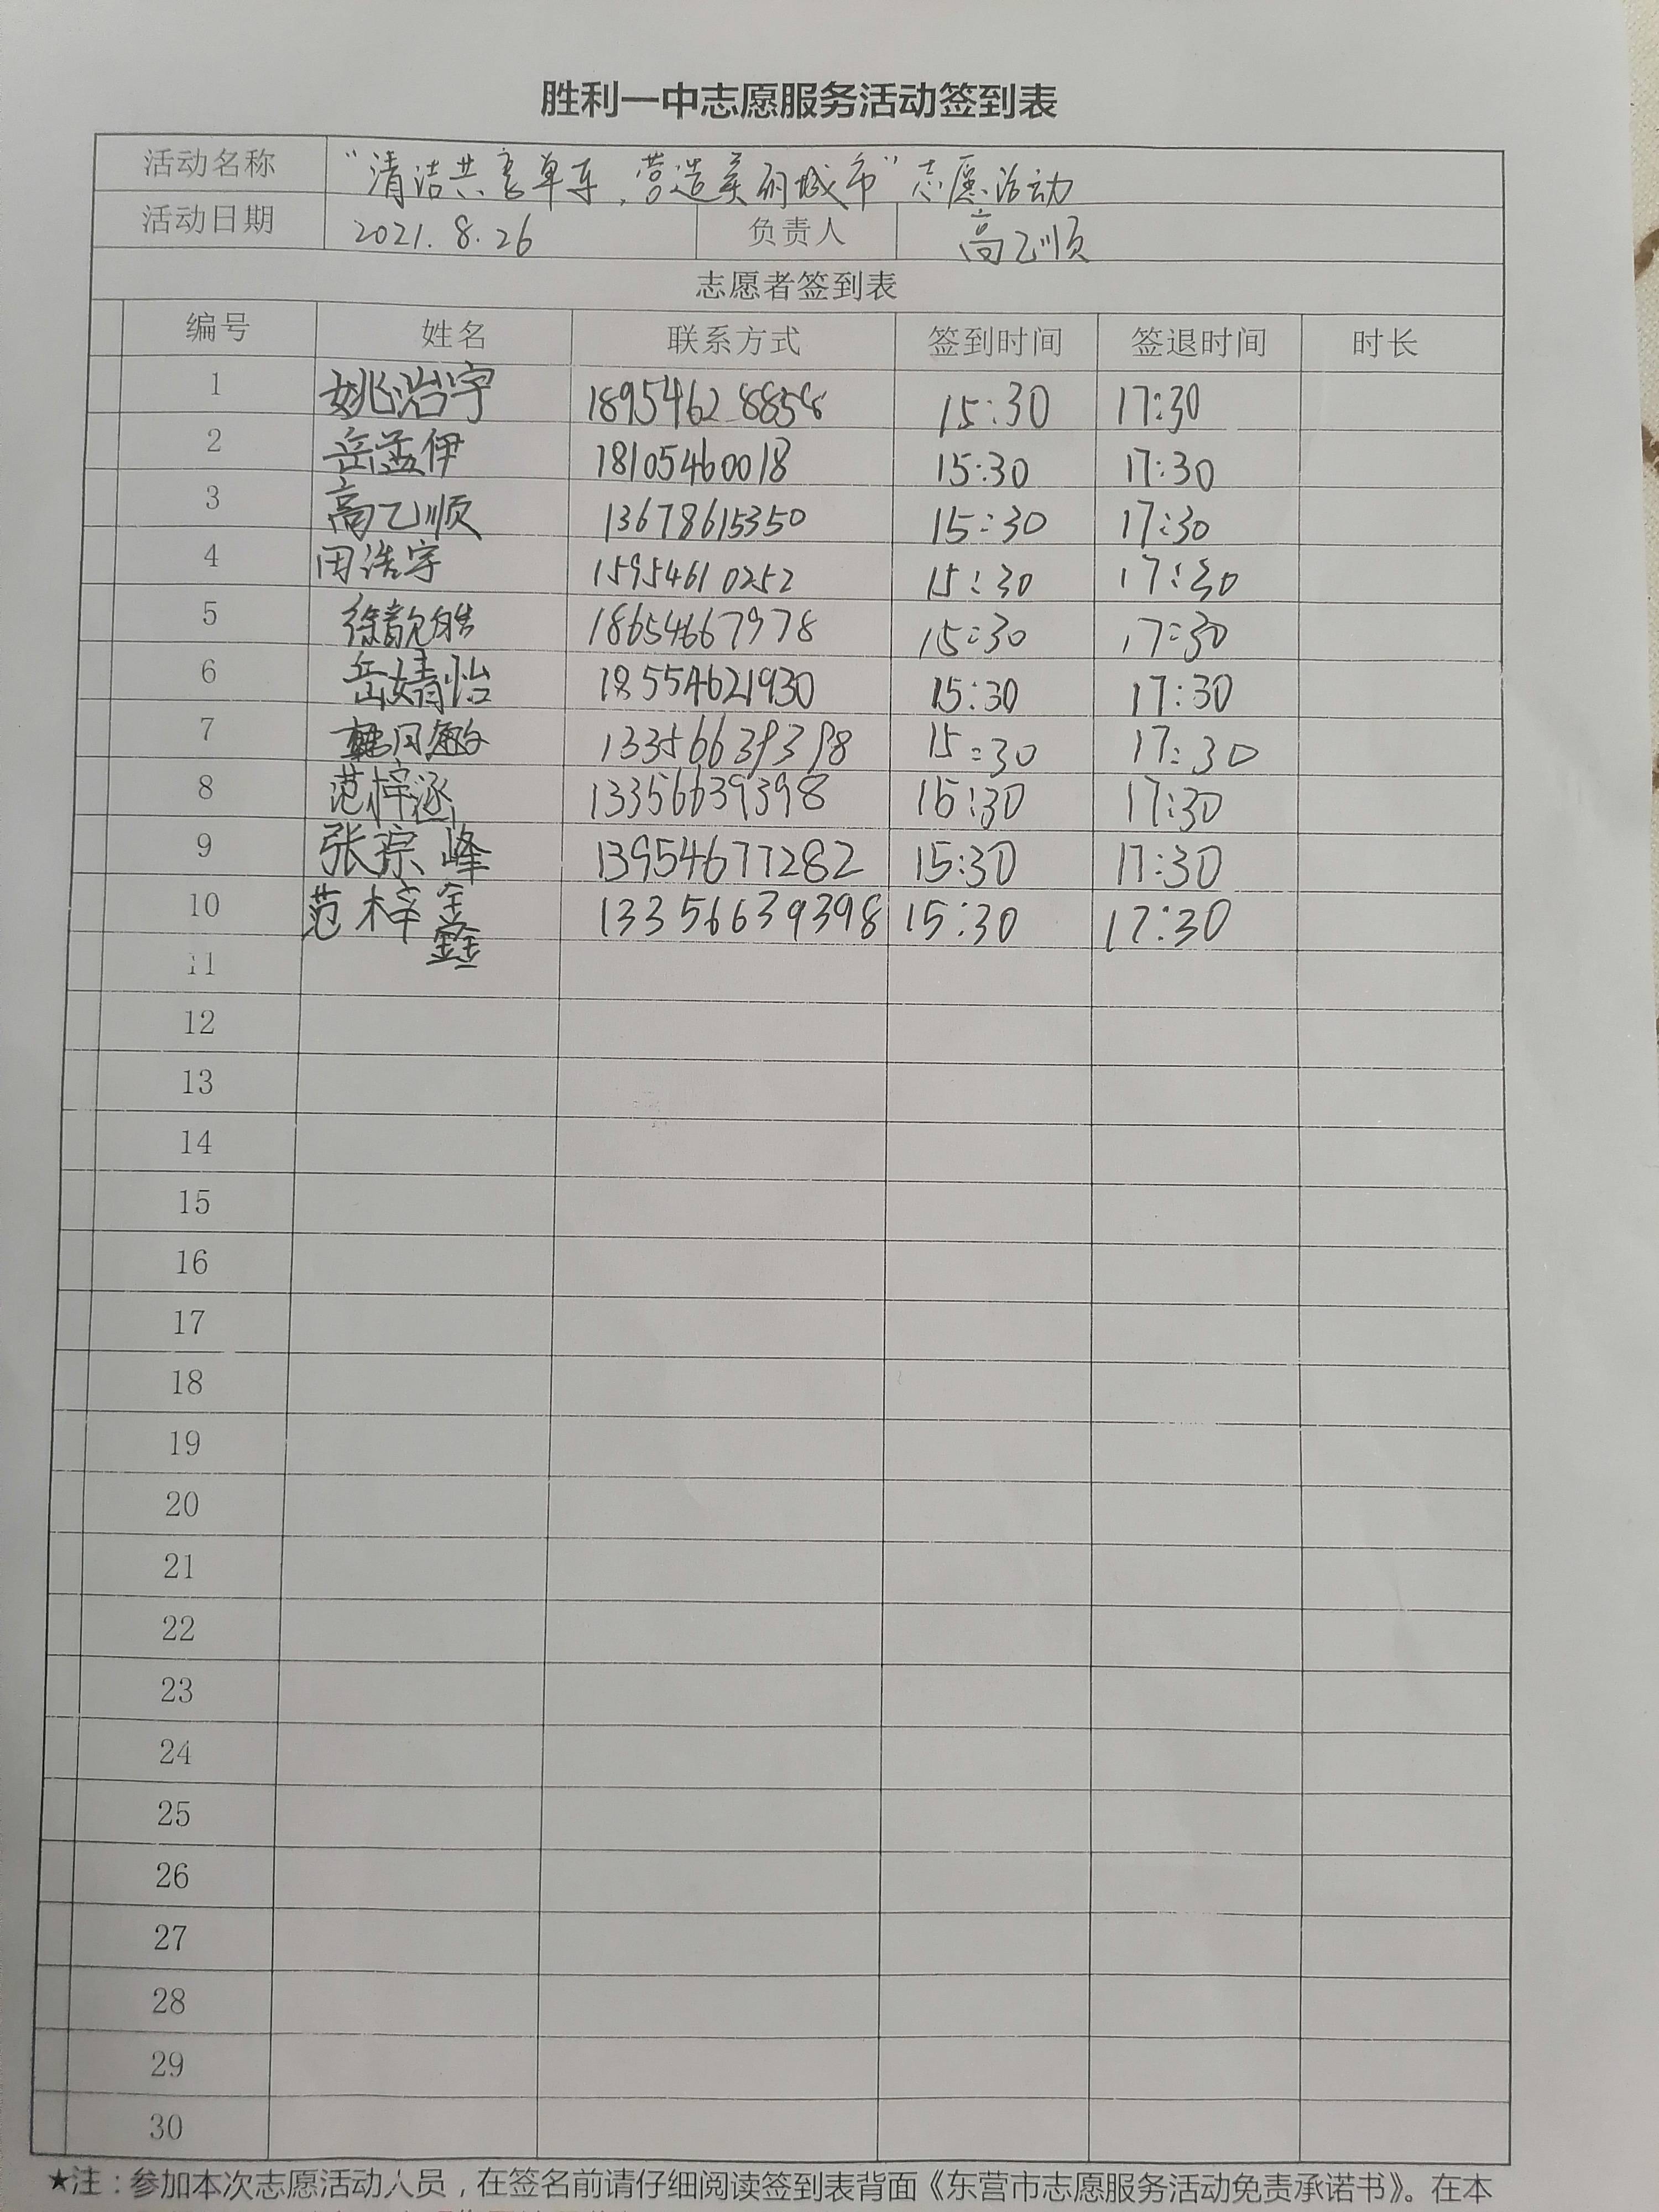 胜利一中志愿服务活动签到表
活动名称 "清洁共享单车,营造美丽城市"志愿活动
活动日期 2021.8.26 负责人 高乙顺
志愿者签到表
编号 姓名 联系方式 签到时间 签退时间 时长
1 姚治宇 18954628858 15:30 17:30
2 岳孟伊 18105460018 15:30 17:30
3 高乙顺 13678615350 15:30 17:30
4 田浩宇 15954610252 15:30 17:30
5 徐靓皓 18654667978 15:30 17:30
6 岳婧怡 18554621930 15:30 17:30
7 13356639398 15:30 17:30
8 范梓涵 13356639398 15:30 17:30
9 张琮峰 13954677282 15:30 17:30
10 范梓鑫 13356639398 15:30 17:30
鑫
11
12
13
14
15
16
17
18
19
20
21
22
23
24
25
26
27
28
29
30
★注:参加本次志愿活动人员,在签名前请仔细阅读签到表背面《东营市志愿服务活动免责承诺书》。在本